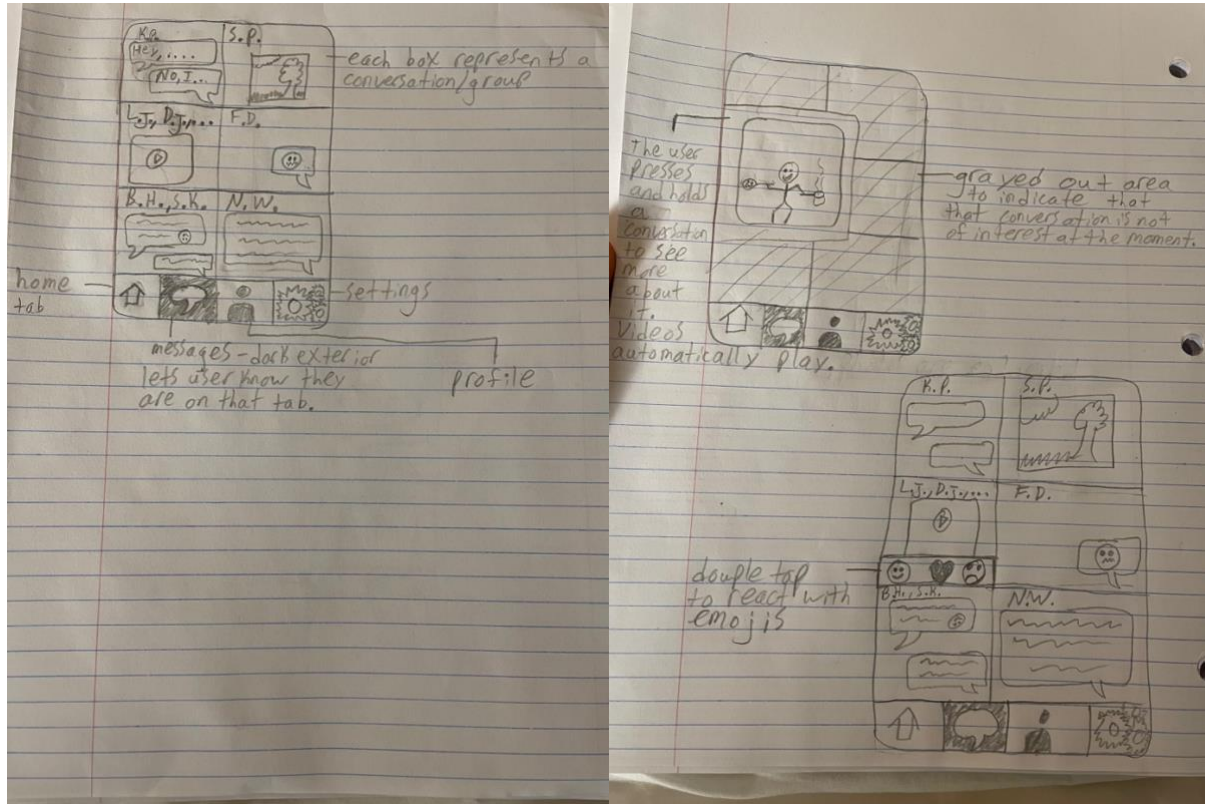 K.P.
Hey, ....
No, I...
S.P.
each box represents a
conversation/group
L.J., D.J.,...
F.D.
B.H., S.K.
N.W.
home
tab
settings
messages - dark exterior
lets user know they
are on that tab.
profile
the user
presses
and holds
a
conversation
to see
more
about
it.
Videos
automatically play.
grayed out area
to indicate that
that conversation is not
of interest at the moment.
K.P.
S.P.
L.J., D.J.,...
F.D.
double tap
to react with
emojis
B.H., S.K.
N.W.